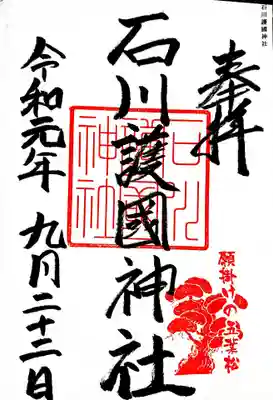 石川護國神社
奉拝
石川護國神社
願掛けの五葉松
令和元年 九月二十二日